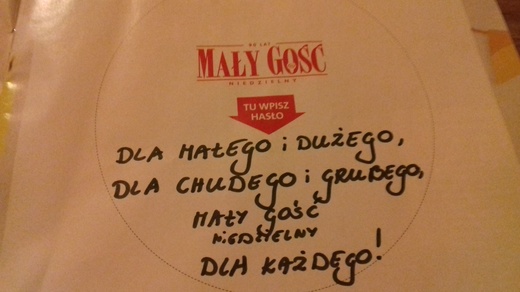 90 LAT
MAŁY GOŚĆ
NIEDZIELNY
TU WPISZ
HASŁO
DLA MAŁEGO i DUŻEGO,
DLA CHUDEGO i GRUBEGO,
MAŁY GOŚĆ
NIEDZIELNY
DLA KAŻDEGO!